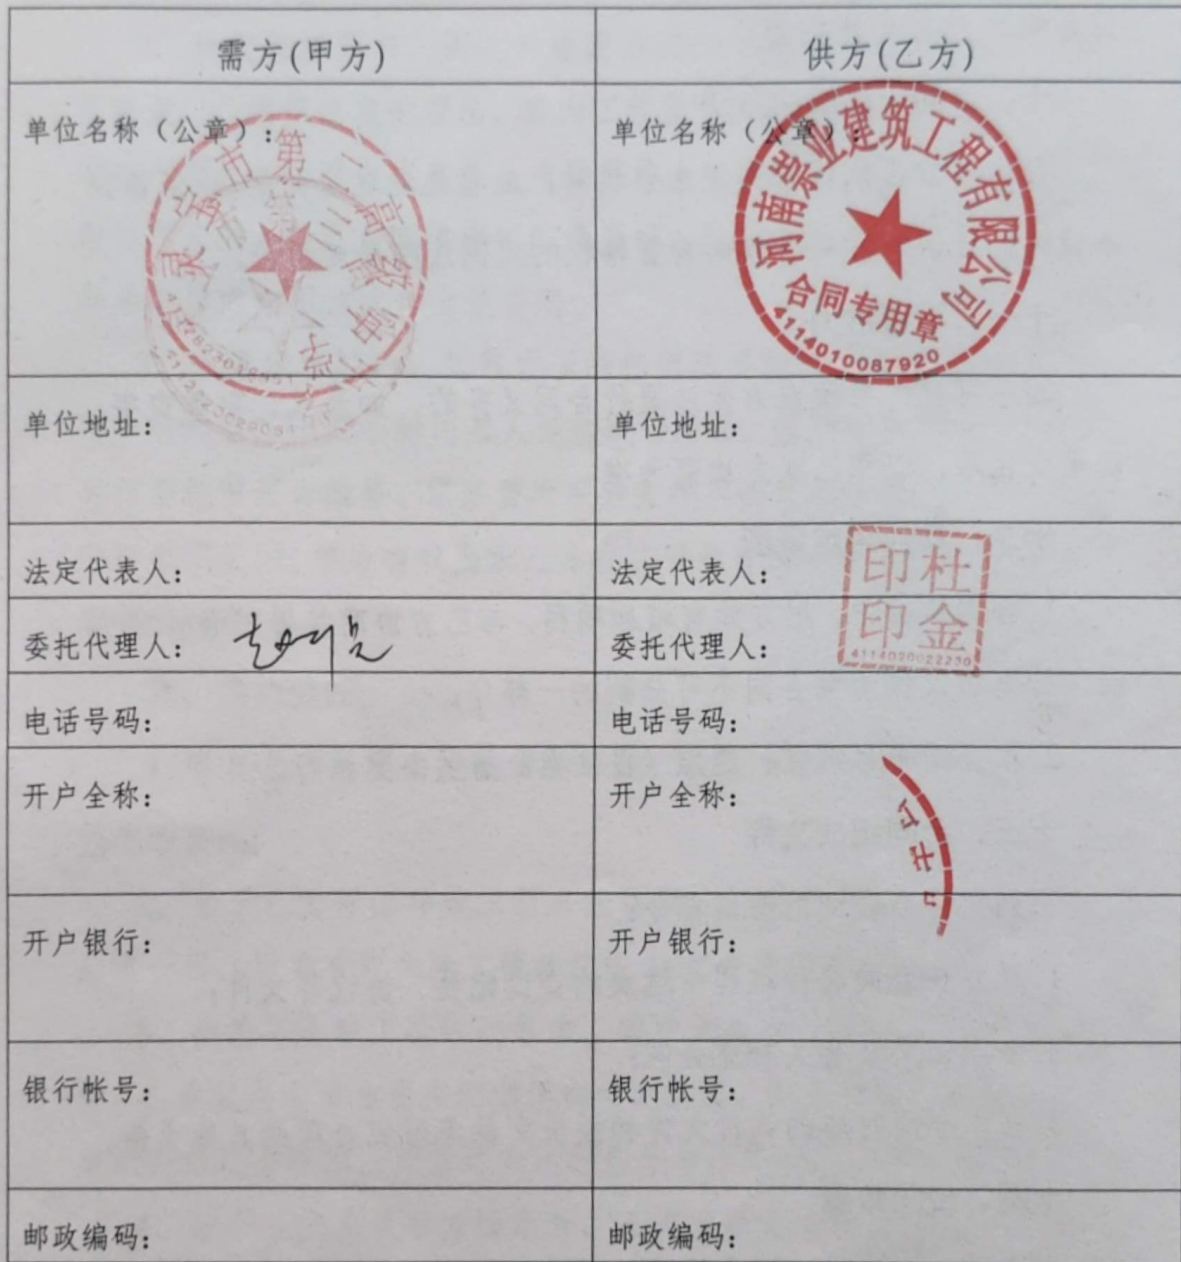 需方(甲方)
供方(乙方)
单位名称（公章）：
单位名称（公章）：
灵宝市第三高级中学
河南崇业建筑工程有限公司
合同专用章
4114010087920
单位地址：
单位地址：
法定代表人：
法定代表人：
印杜
印金
4114020022230
委托代理人：
委托代理人：
电话号码：
电话号码：
开户全称：
开户全称：
开户银行：
开户银行：
银行帐号：
银行帐号：
邮政编码：
邮政编码：